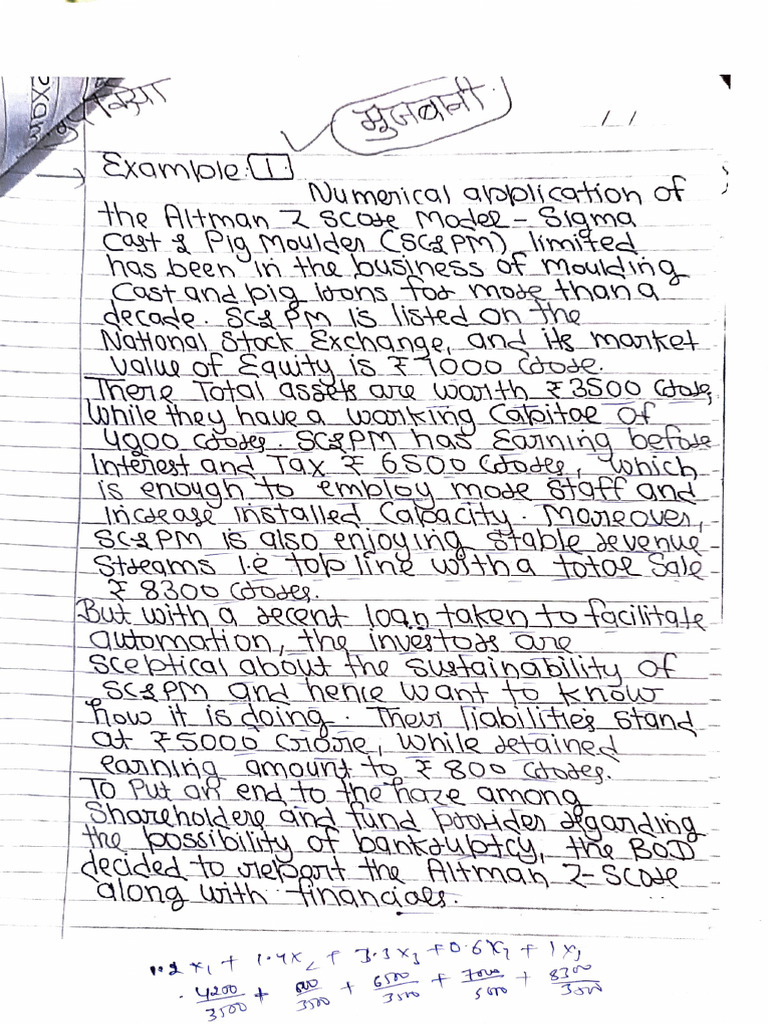 मुजबानी
/ /
→ Example: 1
Numerical application of
the Altman Z Score Model - Sigma
Cast & Pig Moulder (SC&PM) limited
has been in the business of moulding
Cast and pig irons for more than a
decade. SC&PM is listed on the
National Stock Exchange, and its market
Value of Equity is ₹7000 crore.
There Total assets are worth ₹3500 crore,
While they have a working Capital of
4200 crores. SC&PM has Earning before
Interest and Tax ₹ 6500 crores, which
is enough to employ more staff and
increase installed Capacity. Moreover,
SC&PM is also enjoying stable revenue
Streams i.e top line with a total Sale
₹ 8300 crores.
But with a recent loan taken to facilitate
automation, the investors are
sceptical about the sustainability of
SC&PM and hence want to know
how it is doing. Their liabilities stand
at ₹5000 crore, while retained
earning amount to ₹ 800 crores.
To put an end to the haze among
Shareholders and fund provider regarding
the possibility of bankruptcy, the BOD
decided to report the Altman Z-Score
along with financials.
1.2 x₁ + 1.4x₂ + 3.3x₃ + 0.6x₄ + 1x₅
4200/3500 + 800/3500 + 6500/3500 + 7000/5000 + 8300/3500